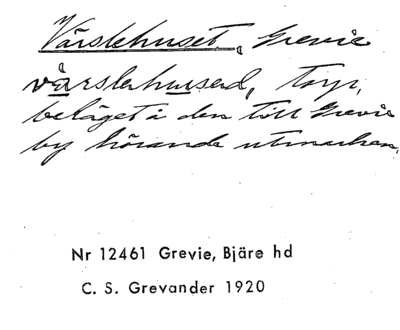 Värslehuset, Grevie
värslehused, torp,
beläget å den till Grevie
by hörande utmarken.
Nr 12461 Grevie, Bjäre hd
C. S. Grevander 1920